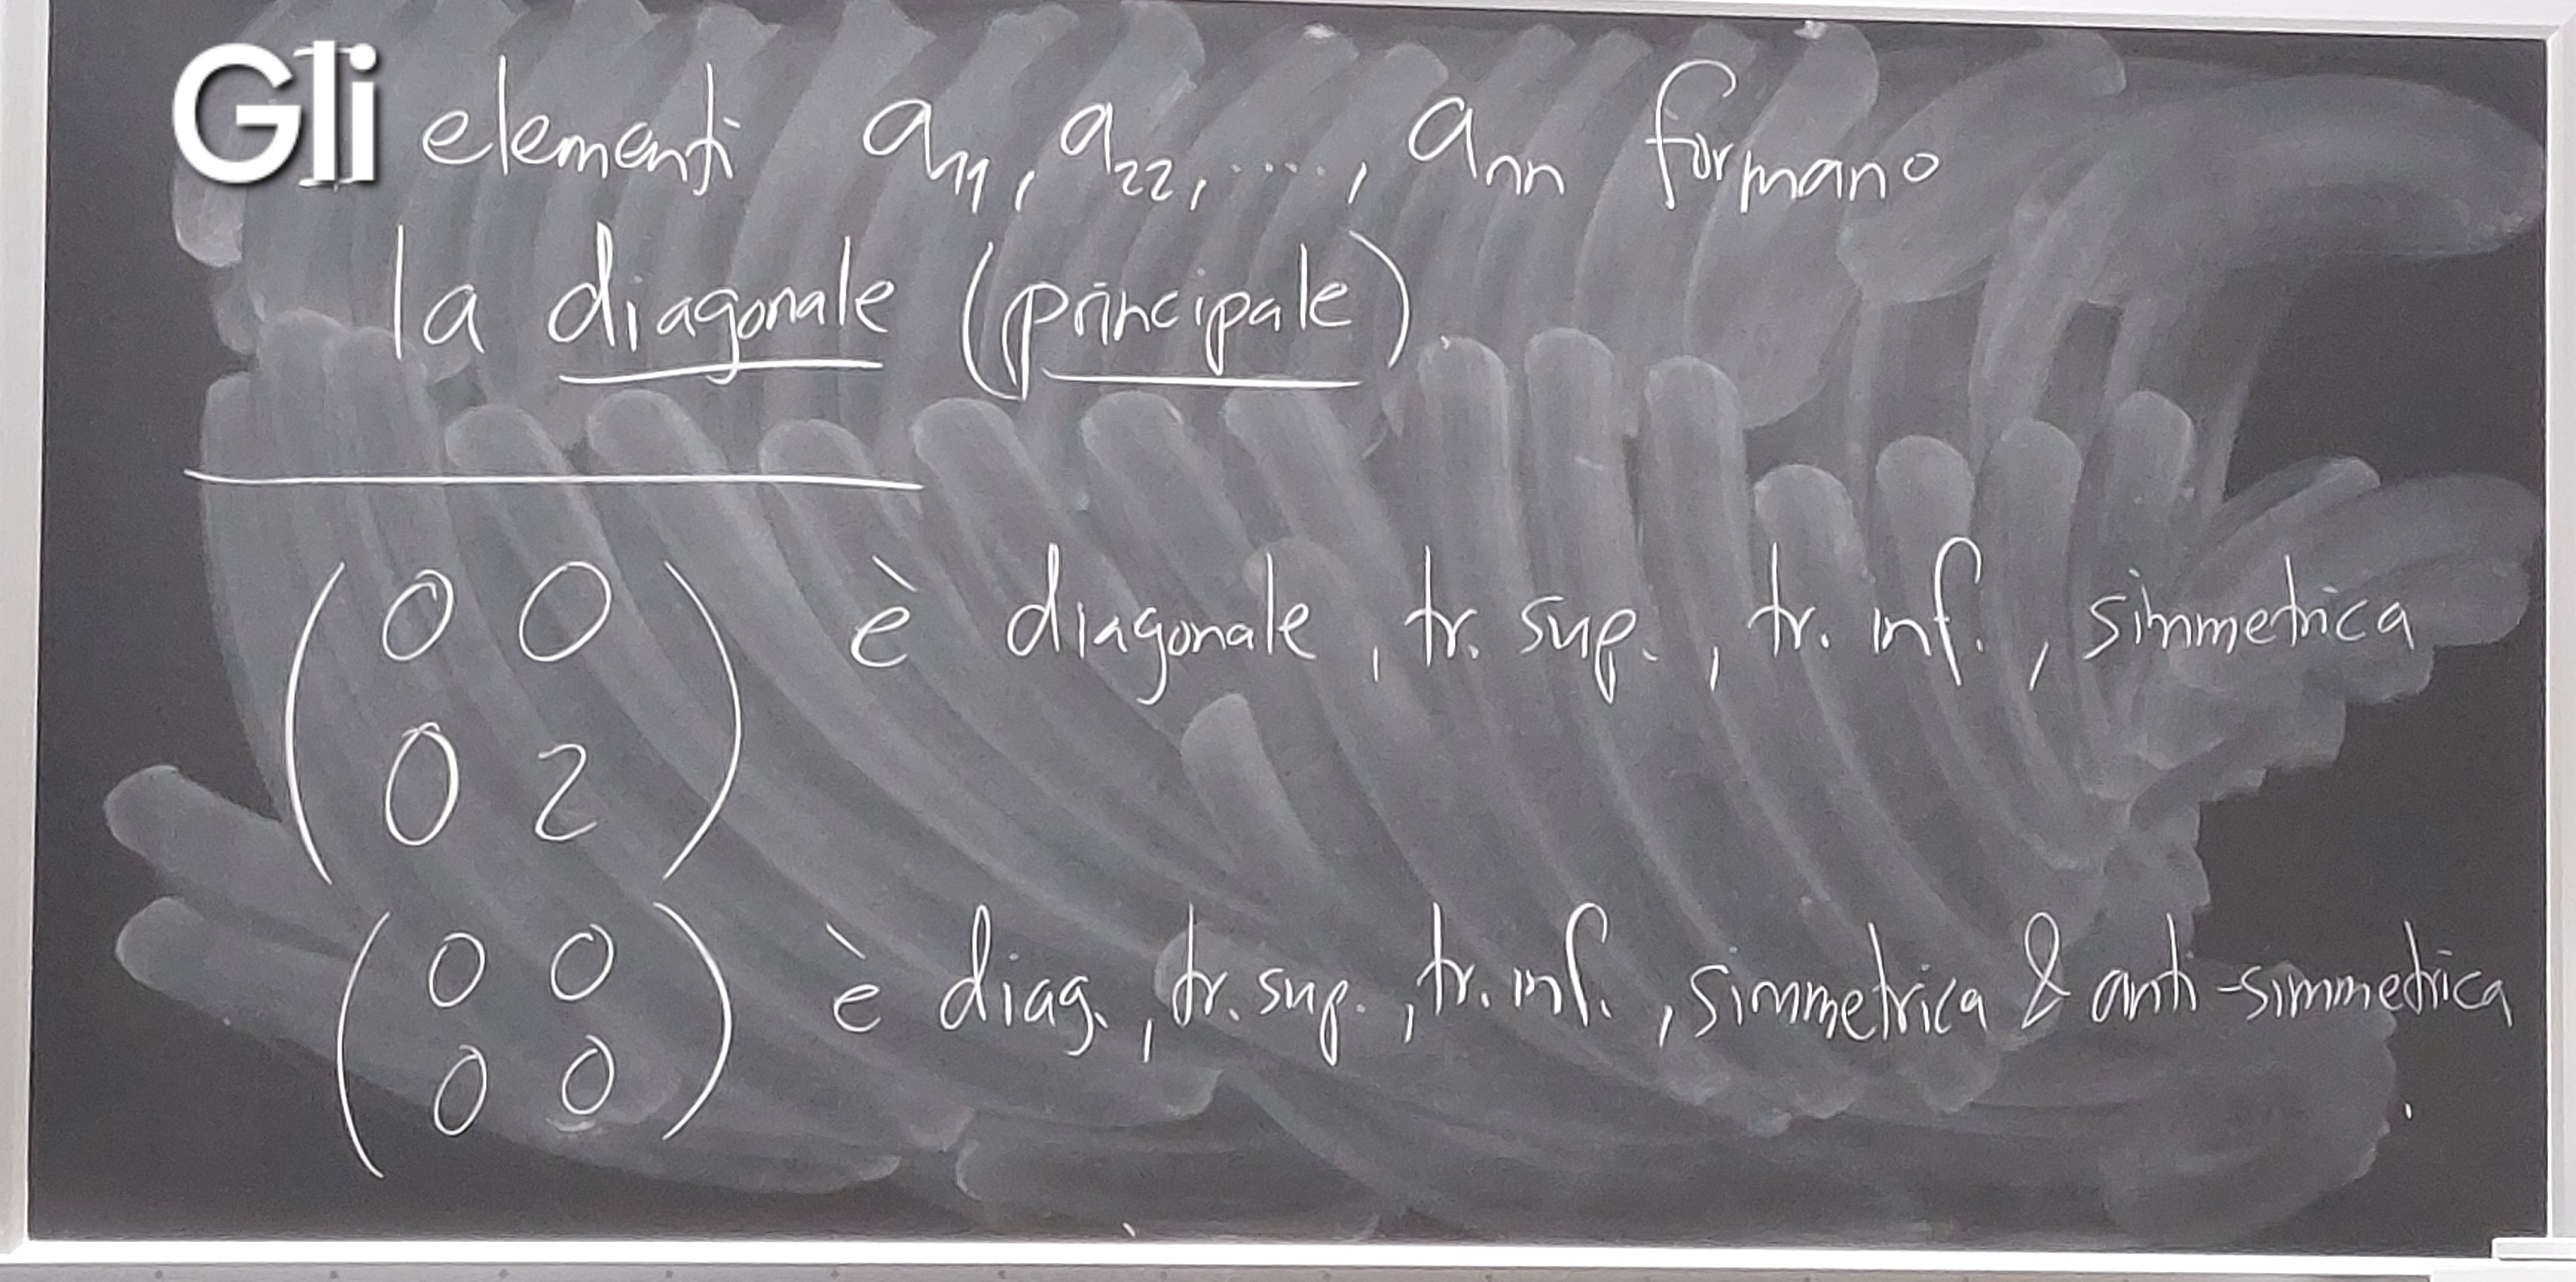 Gli elementi a₁₁, a₂₂, ....., aₙₙ formano
la diagonale (principale).
( 0 0 ) è diagonale, tr. sup., tr. inf., simmetrica
( 0 2 )
( 0 0 ) è diag., tr. sup., tr. inf., simmetrica & anti-simmetrica
( 0 0 ) .